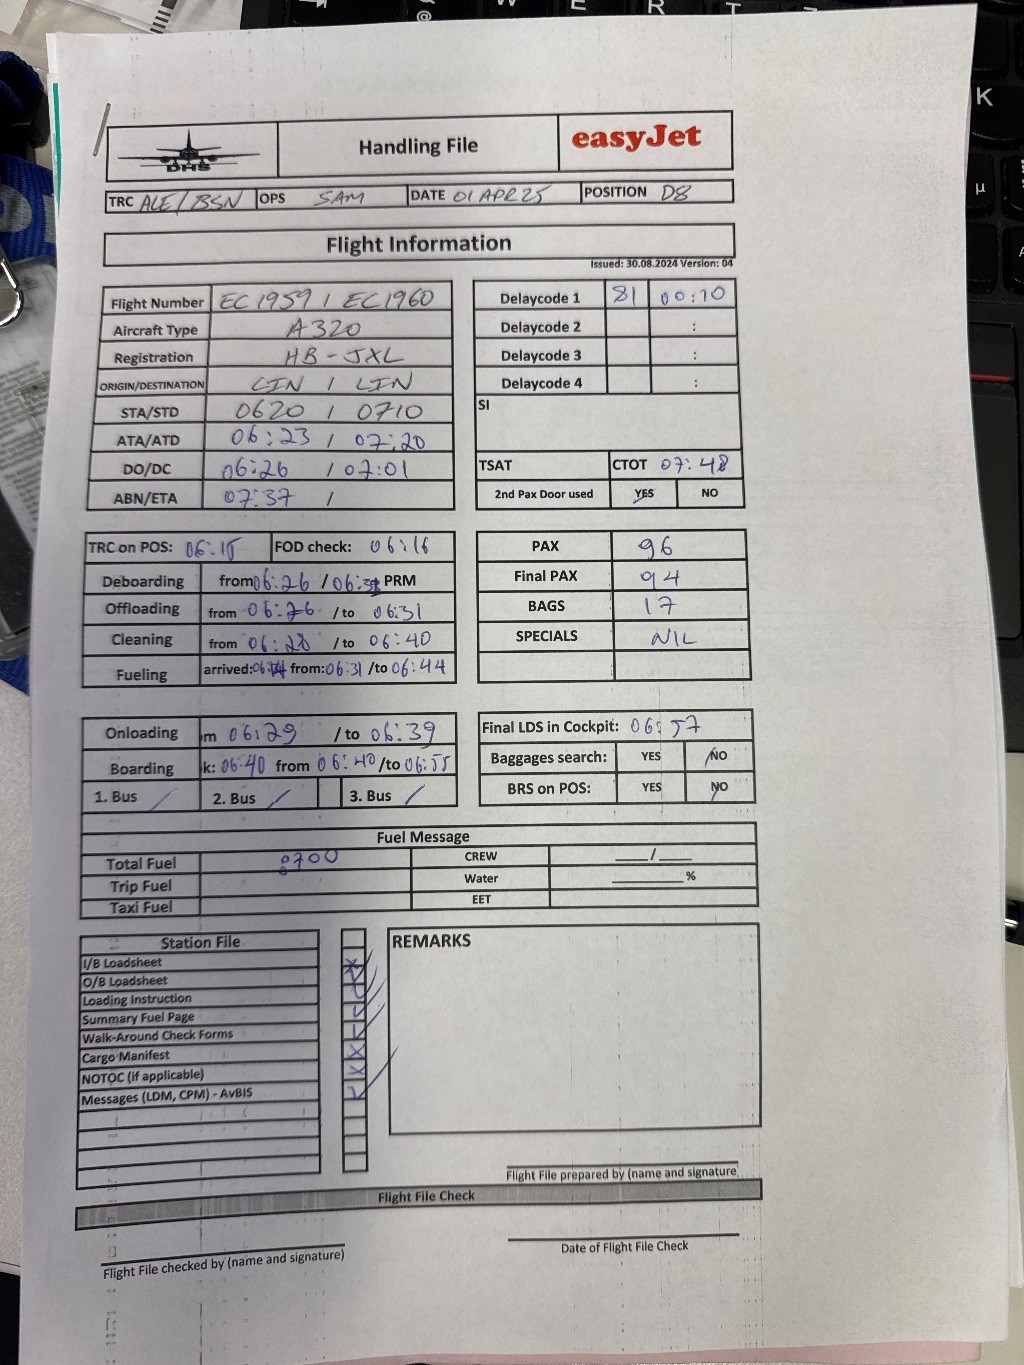 DHS
Handling File
easyJet
TRC ALE / BSN OPS SAM DATE 01 APR 25 POSITION D8
Flight Information
Issued: 30.08.2024 Version: 04
Flight Number EC 1959 / EC 1960
Aircraft Type A320
Registration HB-JXL
ORIGIN/DESTINATION LIN / LIN
STA/STD 0620 / 0710
ATA/ATD 06:23 / 07:20
DO/DC 06:26 / 07:01
ABN/ETA 07:37 /
Delaycode 1 81 00:10
Delaycode 2 :
Delaycode 3 :
Delaycode 4 :
SI
TSAT CTOT 07:48
2nd Pax Door used YES NO
TRC on POS: 06:15 FOD check: 06:16
Deboarding from 06:26 / PRM
Offloading from 06:26 /to 06:31
Cleaning from 06:28 /to 06:40
Fueling arrived: from:06:31 /to 06:44
PAX 96
Final PAX 94
BAGS 17
SPECIALS NIL
Onloading m 06:29 /to 06:39
Boarding k: 06:40 from 06:40 /to 06:55
1. Bus / 2. Bus / 3. Bus /
Final LDS in Cockpit: 06:57
Baggages search: YES NO
BRS on POS: YES NO
Fuel Message
Total Fuel 8700 CREW ____/____
Trip Fuel Water ________%
Taxi Fuel EET
Station File
I/B Loadsheet
O/B Loadsheet
Loading Instruction
Summary Fuel Page
Walk-Around Check Forms
Cargo Manifest
NOTOC (if applicable)
Messages (LDM, CPM) - AvBIS
REMARKS
Flight File prepared by (name and signature
Flight File Check
Flight File checked by (name and signature)
Date of Flight File Check